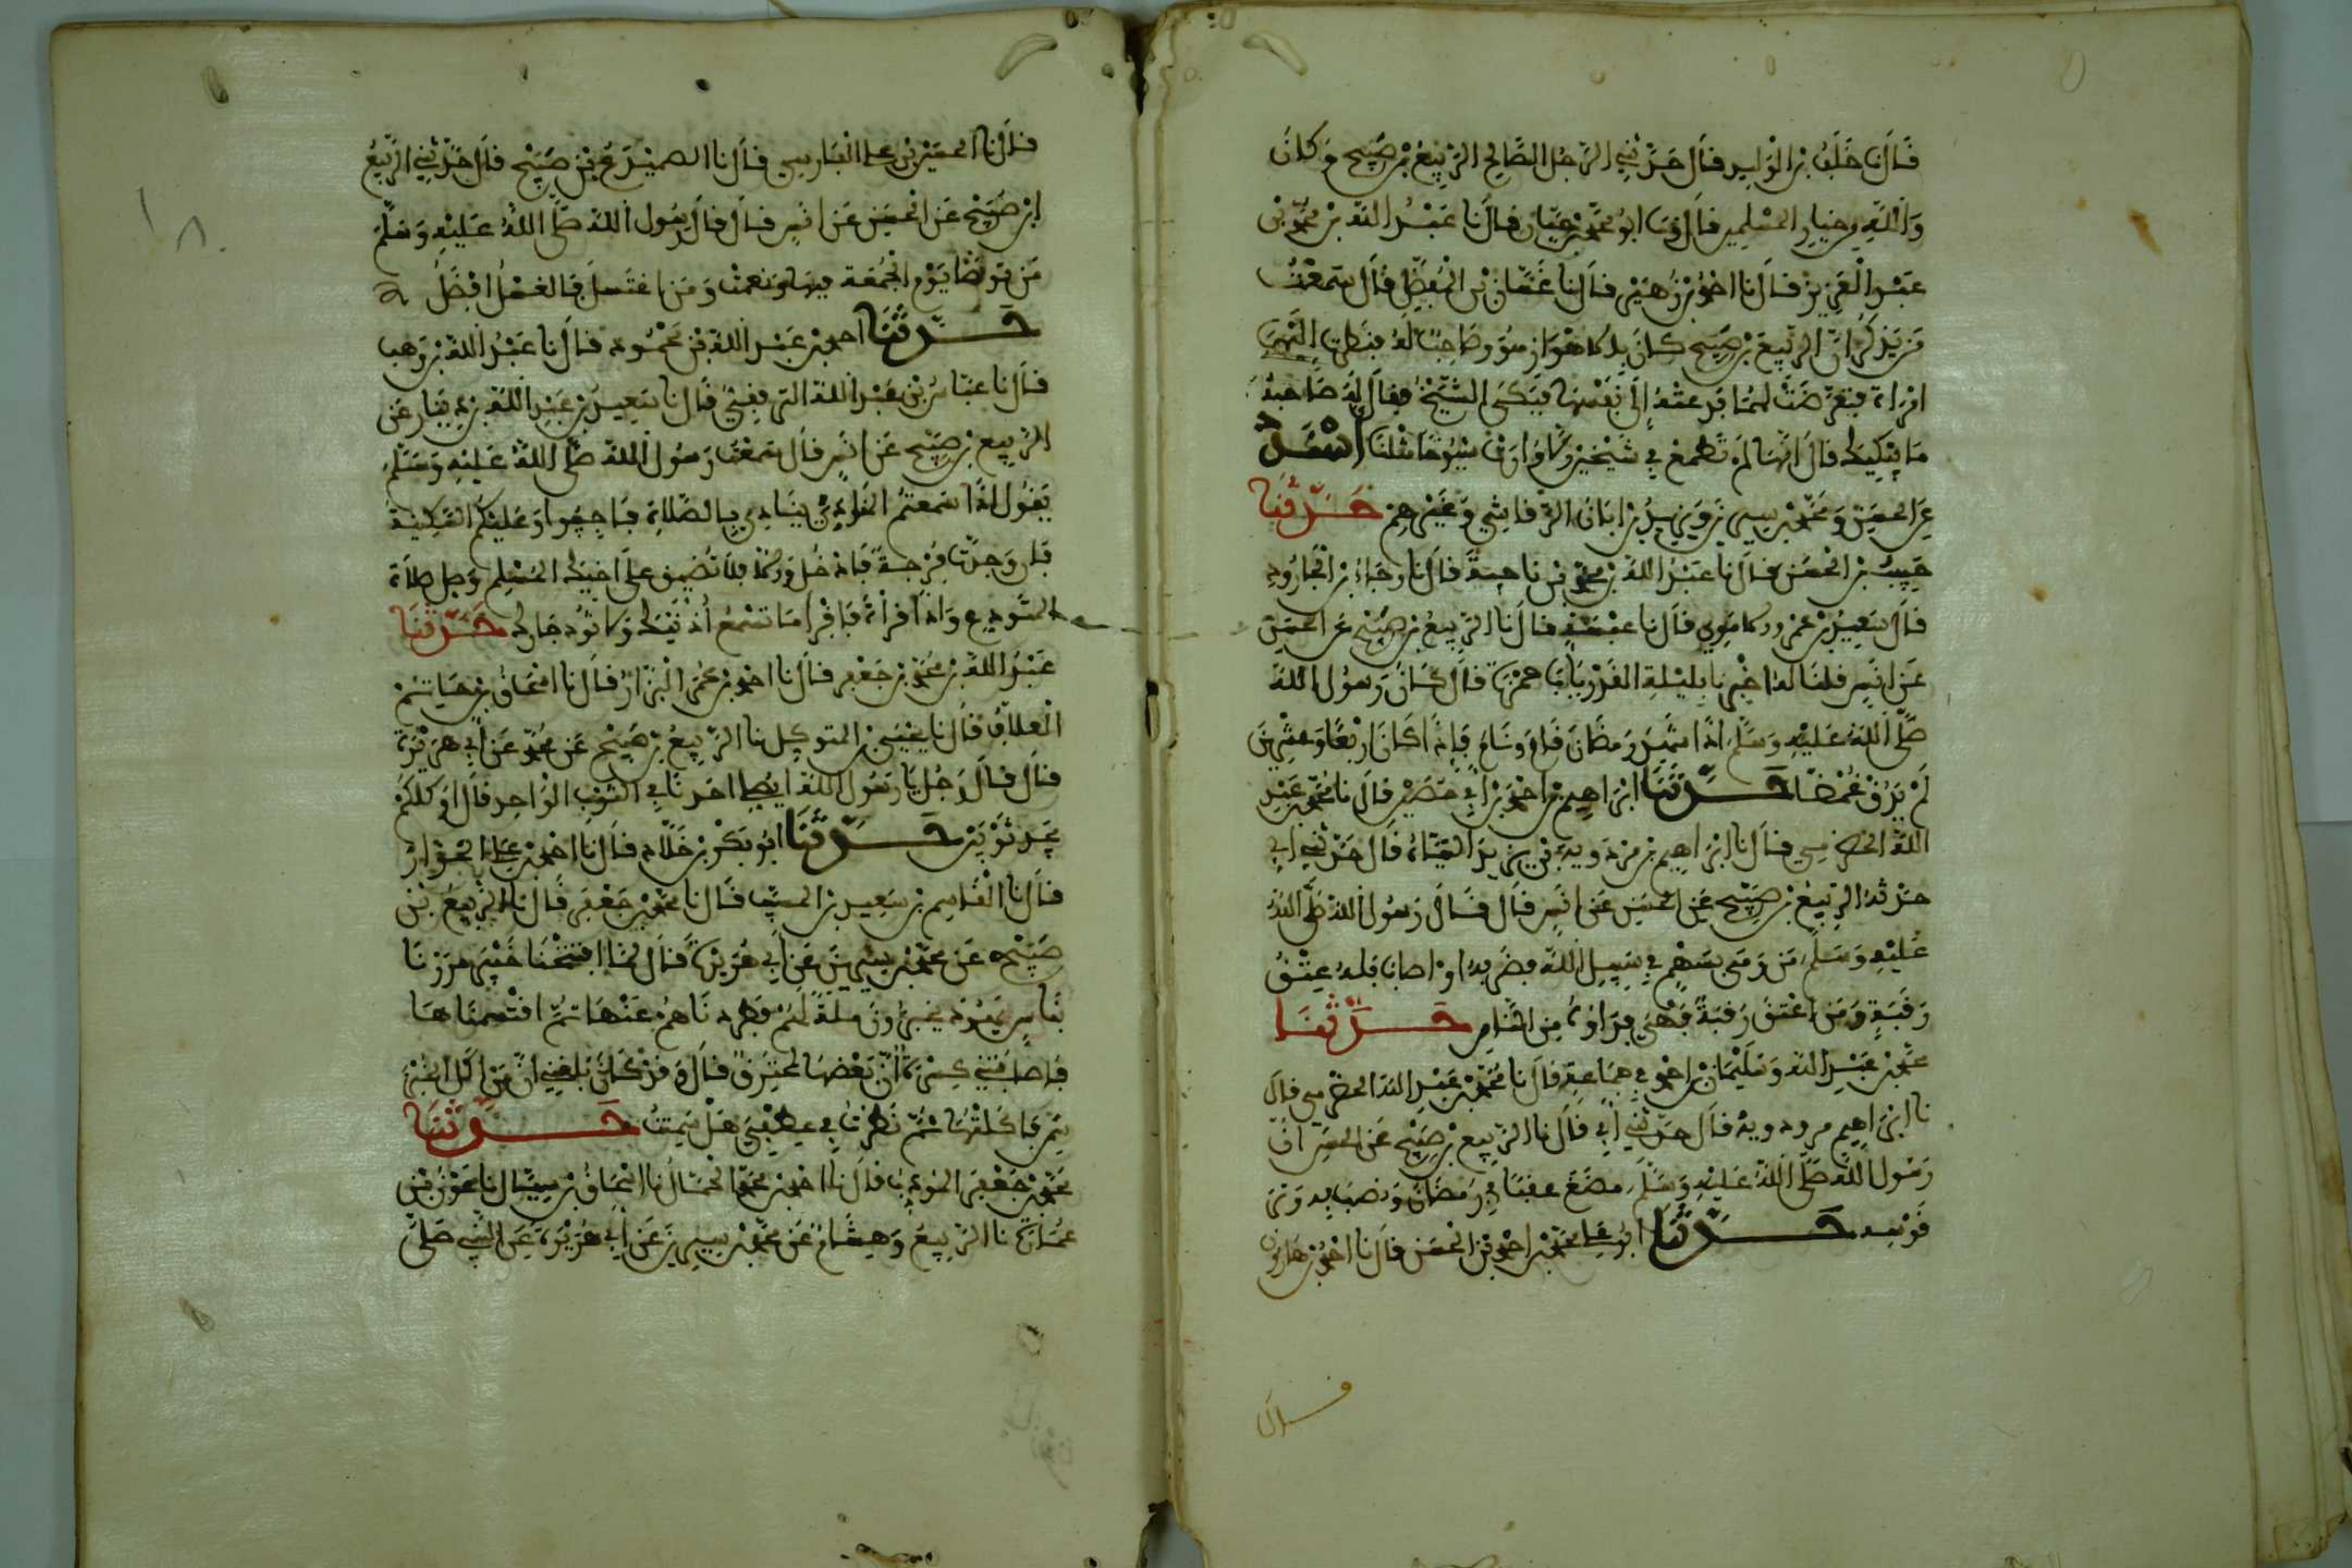 قَالَ نَا خَلَفُ بْنُ الْوَلِيدِ قَالَ حَدَّثَنِي الرَّجُلُ الصَّالِحُ الرَّبِيعُ بْنُ صَبِيحٍ وَكَانَ
وَاللَّهِ مِن خِيَارِ الْمُسْلِمِينَ قَالَ وَنَا أَبُو مُحَمَّدِ بْنُ حَيَّانَ قَالَ نَا عَبْدُ اللَّهِ بْنُ مُحَمَّدِ بْنِ
عَبْدِ الْعَزِيزِ قَالَ نَا أَحْمَدُ بْنُ زُهَيْرٍ قَالَ نَا غَسَّانُ بْنُ الْمُفَضَّلِ قَالَ سَمِعْتُ
مَن يَذْكُرُ أَنَّ الرَّبِيعَ بْنَ صَبِيحٍ كَانَ بِالأَهْوَازِ هُوَ وَصَاحِبٌ لَهُ فَنَظَرَتْ إِلَيْهِمَا
امْرَأَةٌ فَتَعَرَّضَتْ لَهُمَا فَدَعَتْهُ إِلَى نَفْسِهَا فَبَكَى الشَّيْخُ فَقَالَ لَهُ صَاحِبُهُ
مَا يُبْكِيكَ قَالَ إِنَّهَا لَمْ تَطْمَعْ فِي شَيْخَيْنِ إِلَّا وَرَأَتْ شُيُوخًا مِثْلَنَا أَسْنَدَ
عَنِ الْحَسَنِ وَمُحَمَّدِ بْنِ سِيرِينَ وَيَزِيدَ بْنِ أَبَانَ الرَّقَاشِيِّ وَغَيْرِهِمْ حَدَّثَنَا
حَبِيبُ بْنُ الْحَسَنِ قَالَ نَا عَبْدُ اللَّهِ بْنُ مُحَمَّدِ بْنِ نَاجِيَةَ قَالَ نَا رَجَاءُ بْنُ الْجَارُودِ
قَالَ سَعِيدُ بْنُ عَمْرٍو الأُمَوِيُّ قَالَ نَا عَنْبَسَةُ قَالَ نَا الرَّبِيعُ بْنُ صَبِيحٍ عَنِ الْحَسَنِ
عَنْ أَنَسٍ قُلْنَا لَهُ أَخْبِرْنَا بِلَيْلَةِ الْقَدْرِ يَابَا حَمْزَةَ قَالَ كَانَ رَسُولُ اللَّهِ
صَلَّى اللَّهُ عَلَيْهِ وَسَلَّمَ إِذَا شَهِدَ رَمَضَانَ قَامَ وَنَامَ فَإِذَا كَانَ أَرْبَعًا وَعِشْرِينَ
لَمْ يَذُقْ غُمْضًا حَدَّثَنَا إِبْرَاهِيمُ بْنُ أَحْمَدَ بْنِ أَبِي حُصَيْنٍ قَالَ نَا مُحَمَّدُ بْنُ عَبْدِ
اللَّهِ الْحَضْرَمِيُّ قَالَ نَا إِبْرَاهِيمُ بْنُ مَرْدَوَيْهِ بْنِ يَزِيدَ قَالَ حَدَّثَنِي أَبِي
حَدَّثَهُ الرَّبِيعُ بْنُ صَبِيحٍ عَنِ الْحَسَنِ عَنْ أَنَسٍ قَالَ قَالَ رَسُولُ اللَّهِ صَلَّى اللَّهُ
عَلَيْهِ وَسَلَّمَ مَن رَمَى بِسَهْمٍ فِي سَبِيلِ اللَّهِ فَقَصَّرَ بِهِ أَوْ أَصَابَ فَلَهُ عِتْقُ
رَقَبَةٍ وَمَنْ أَعْتَقَ رَقَبَةً فَهْيَ فِدَاؤُهُ مِنَ النَّارِ حَدَّثَنَا
مُحَمَّدُ بْنُ عَبْدِ اللَّهِ وَسُلَيْمَانُ بْنُ أَحْمَدَ فِي جَمَاعَةٍ قَالَ نَا مُحَمَّدُ بْنُ عَبْدِ اللَّهِ الْحَضْرَمِيُّ قَالَ
نَا إِبْرَاهِيمُ مردويه قَالَ حَدَّثَنِي أَبِي قَالَ نَا الرَّبِيعُ بْنُ صَبِيحٍ عَنِ الْحَسَنِ أَنَّ
رَسُولَ اللَّهِ صَلَّى اللَّهُ عَلَيْهِ وَسَلَّمَ مَضَغَ عقبا فِي رَمَضَانَ وَرَصَفَ بِهِ وَتَرَ
قَوْسِهِ حَدَّثَنَا أَبُو عَلِيٍّ مُحَمَّدُ بْنُ أَحْمَدَ بْنِ الْحَسَنِ قَالَ نَا أَحْمَدُ بْنُ هَارُونَ
قال
قَالَ نَا الْحُسَيْنُ بْنُ عَلِيٍّ الْفَارِسِيُّ قَالَ نَا بْنُ صَبِيحٍ قَالَ حَدَّثَنِي الرَّبِيعُ
ابْنُ صَبِيحٍ عَنِ الْحَسَنِ عَنْ أَنَسٍ قَالَ قَالَ رَسُولُ اللَّهِ صَلَّى اللَّهُ عَلَيْهِ وَسَلَّمَ
مَن تَوَضَّأَ يَوْمَ الْجُمُعَةِ فَبِهَا وَنِعْمَتْ وَمَنِ اغْتَسَلَ فَالْغُسْلُ أَفْضَلُ
حَدَّثَنَا أَحْمَدُ بْنُ عَبْدِ اللَّهِ بْنِ مَحْمُودٍ قَالَ نَا عَبْدُ اللَّهِ بْنُ وَهْبٍ
قَالَ نَا عَبَّاسُ بْنُ عَبْدِ اللَّهِ التَّرْقُفِيُّ قَالَ نَا سَعِيدُ بْنُ عَبْدِ اللَّهِ بْنِ دِينَارٍ عَنِ
الرَّبِيعِ بْنِ صَبِيحٍ عَنْ أَنَسٍ قَالَ سَمِعْتُ رَسُولَ اللَّهِ صَلَّى اللَّهُ عَلَيْهِ وَسَلَّمَ
يَقُولُ إِذَا سَمِعْتُمُ يُنَادِي بِالصَّلَاةِ فَأَجِيبُوا وَعَلَيْكُمُ السَّكِينَةُ
فَإِن وَجَدْتَ فُرْجَةً فَادْخُلْ وَإِلَّا فَلَا تُضَيِّقْ عَلَى أَخِيكَ الْمُسْلِمِ وَصَلِّ صَلَاةَ
الْمُوَدِّعِ وَإِذَا قَرَأْتَ فَاقْرَأْ مَا تُسْمِعُ أُذُنَيْكَ وَلَا تُؤْذِ جَارَكَ حَدَّثَنَا
عَبْدُ اللَّهِ بْنُ مُحَمَّدِ بْنِ جَعْفَرٍ قَالَ نَا أَحْمَدُ بْنُ عُمَرَ الْبَزَّارُ قَالَ نَا إِسْحَاقُ بْنُ
الْعَلَّافُ قَالَ نَا يَحْيَى بْنُ الْمُتَوَكِّلِ نَا الرَّبِيعُ بْنُ صَبِيحٍ عَنْ مُحَمَّدٍ عَنْ أَبِي هُرَيْرَةَ
قَالَ قَالَ رَجُلٌ يَا رَسُولَ اللَّهِ أَيُصَلِّي أَحَدُنَا فِي الثَّوْبِ الْوَاحِدِ قَالَ أَوَكُلُّكُمْ
يَجِدُ ثَوْبَيْنِ حَدَّثَنَا أَبُو بَكْرِ بْنُ خَلَّادٍ قَالَ نَا أَحْمَدُ بْنُ عَلِيٍّ الْخَزَّازُ
قَالَ نَا الْقَاسِمُ بْنُ سَعِيدِ بْنِ الْمُسَيَّبِ قَالَ نَا مُحَمَّدُ بْنُ جَعْفَرٍ قَالَ نَا الرَّبِيعُ بْنُ
صَبِيحٍ عَنْ مُحَمَّدِ بْنِ سِيرِينَ عَنْ أَبِي هُرَيْرَةَ قَالَ لَمَّا افْتَتَحْنَا خَيْبَرَ مَرَرْنَا
بِنَاسٍ يَهُودَ يَخْبِزُونَ مَلَّةً لَهُمْ فَطَرَدْنَاهُمْ عَنْهَا ثُمَّ اقْتَسَمْنَاهَا
فَأَصَابَتْنِي كِسْرَةٌ إِنَّ بَعْضَهَا لَمُحْتَرِقٌ قَالَ وَقَدْ كَانَ بَلَغَنِي أَنَّ مَنْ أَكَلَ الْخُبْزَ
سَمِنَ فَأَكَلْتُهَا ثُمَّ نَظَرْتُ فِي عِطْفَيَّ هَلْ سَمِنْتُ حَدَّثَنَا
مُحَمَّدُ بْنُ جَعْفَرٍ الْمُؤَدِّبُ قَالَ نَا أَحْمَدُ بْنُ مُحَمَّدٍ الْحَمَّالُ نَا إِسْحَاقُ بْنُ سَيَّارٍ نَا عَوْنُ بْنُ
عُمَارَةَ نَا الرَّبِيعُ وَهِشَامٌ عَنْ مُحَمَّدِ بْنِ سِيرِينَ عَنْ أَبِي هُرَيْرَةَ عَنِ النَّبِيِّ صَلَّى